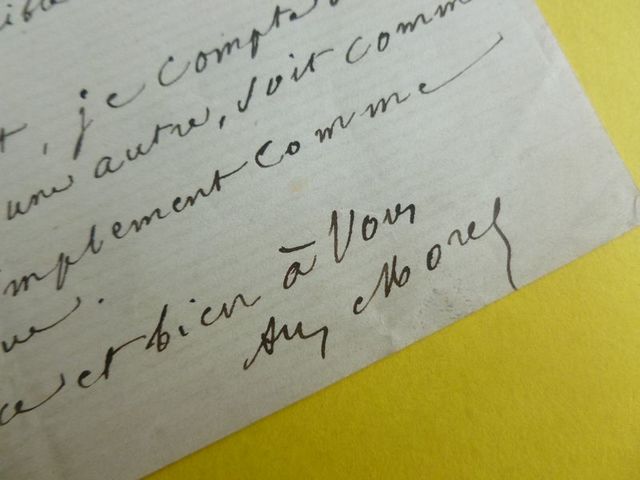 ible
t, je compte
une autre, soit comm
implement comme
ue.
ce et bien à Vous
Aug Morel